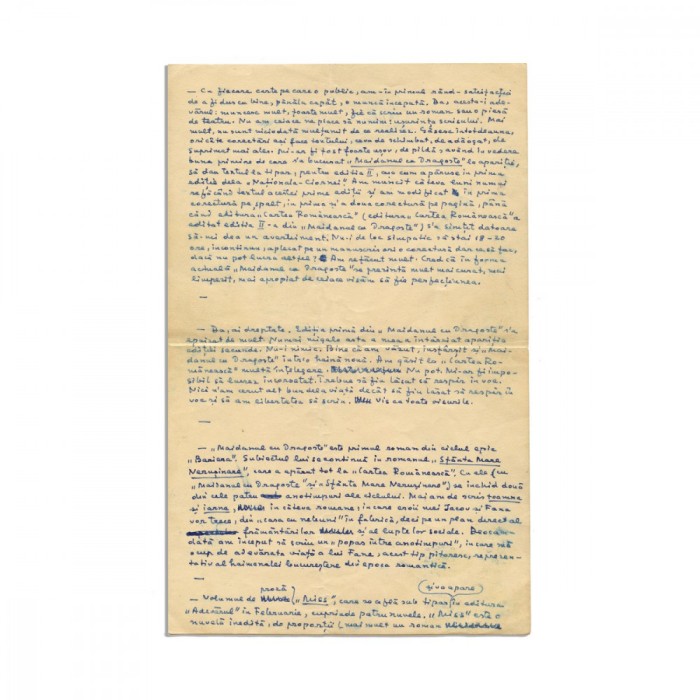 — Cu fiecare carte pe care o public, am în primul rând satisfacția
de a fi dus cu bine, până la capăt, o muncă începută. Da, acesta-i ade-
vărul: muncesc mult, foarte mult, fie că scriu un roman sau o piesă
de teatru. Nu am ceiace va place să numim: ușurința scrisului. Mai
mult, nu sunt niciodată mulțumit de ce realizez. Găsesc întotdeauna,
oricâte corectări aș face textului, ceva de schimbat, de adăogat, de
suprimat mai ales. Mi-ar fi fost foarte ușor, de pildă, având în vedere
buna primire de care s'a bucurat „Maidanul cu Dragoste" la apariție,
să dau textul la tipar, pentru ediția II, așa cum apăruse în prima
ediție dela „Naționala-Ciornei". Am muncit câteva luni numai
refăcând textul acestei prime ediții și am modificat în prima
corectură pe șpalt, în prima și a doua corectură pe pagină, până
când editura „Cartea Românească" (editura „Cartea Românească" a
editat ediția II-a din „Maidanul cu Dragoste") s'a simțit datoare
să-mi dea un avertisment. Nu-i de loc simpatic să stai 18-20
ore, încontinuu, aplecat pe un manuscris ori o corectură dar ce să fac,
dacă nu pot lucra altfel? Am refăcut mult. Cred că în forma
actuală „Maidanul cu Dragoste" se prezintă mult mai curat, mai
limpezit, mai apropiat de ceiace visăm să fie perfecțiunea.
—
— Da, ai dreptate. Ediția primă din „Maidanul cu Dragoste" s'a
epuizat de mult. Numai migala asta a mea a întârziat apariția
ediției secunde. Nu-i nimic. Bine că am văzut, însfârșit și „Mai-
danul cu Dragoste" într'o haină nouă. Am găsit la „Cartea Ro-
mânească" multă înțelegere. Nu pot. Mi-ar fi impo-
sibil să lucrez încorsetat. Trebue să fiu lăsat să respir în voe.
Nici n'am cerut alt bun dela viață decât să fiu lăsat să respir în
voe și să am libertatea să scriu. Vis ca toate visurile.
—
— „Maidanul cu Dragoste" este primul roman din ciclul epic
„Bariera". Subiectul lui se continuă în romanul „Sfânta Mare
Nerușinare", care a apărut tot la „Cartea Românească". Cu ele (cu
„Maidanul cu Dragoste" și „Sfânta Mare Nerușinare") se închid două
din cele patru anotimpuri ale ciclului. Mai am de scris toamna
și iarna, în câteva romane, în care eroii mei Iacov și Fana
vor trece, din „casa cu nebunii" în fabrică, deci pe un plan direct al
frământărilor și al luptelor sociale. Deocam-
dată am început să scriu un „popas între anotimpuri", în care mă
ocup de adevărata viață a lui Fane, acest tip pitoresc, reprezen-
tativ al haimanalei bucureștene din epoca romantică.
—
proză și va apare
— Volumul de „Miss", care se află sub tipar la editura
„Adevărul" în Februarie, cuprinde patru nuvele. „Miss" este o
nuvelă inedită, de proporții (mai mult un roman